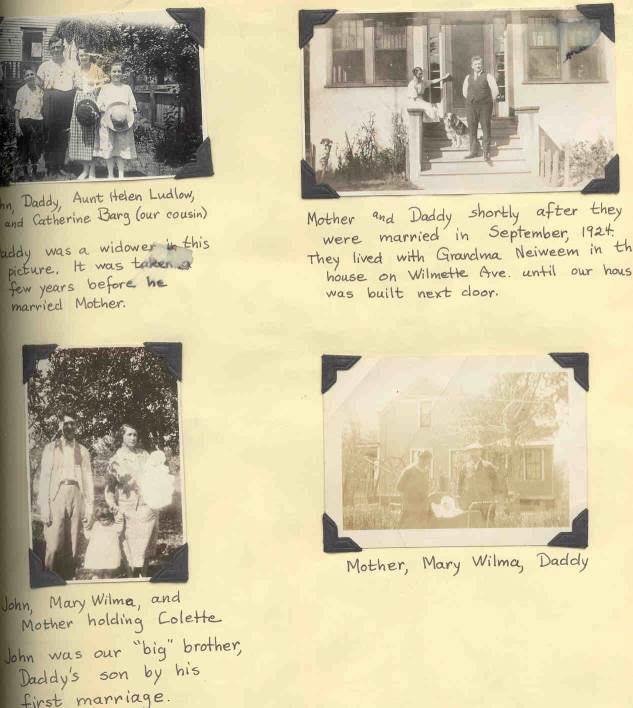 hn, Daddy, Aunt Helen Ludlow,
and Catherine Barg (our cousin)
addy was a widower in this
picture. It was taken a
few years before he
married Mother.
Mother and Daddy shortly after they
were married in September, 1924.
They lived with Grandma Neiweem in th
house on Wilmette Ave. until our hous
was built next door.
John, Mary Wilma, and
Mother holding Colette
John was our "big" brother,
Daddy's son by his
first marriage.
Mother, Mary Wilma, Daddy